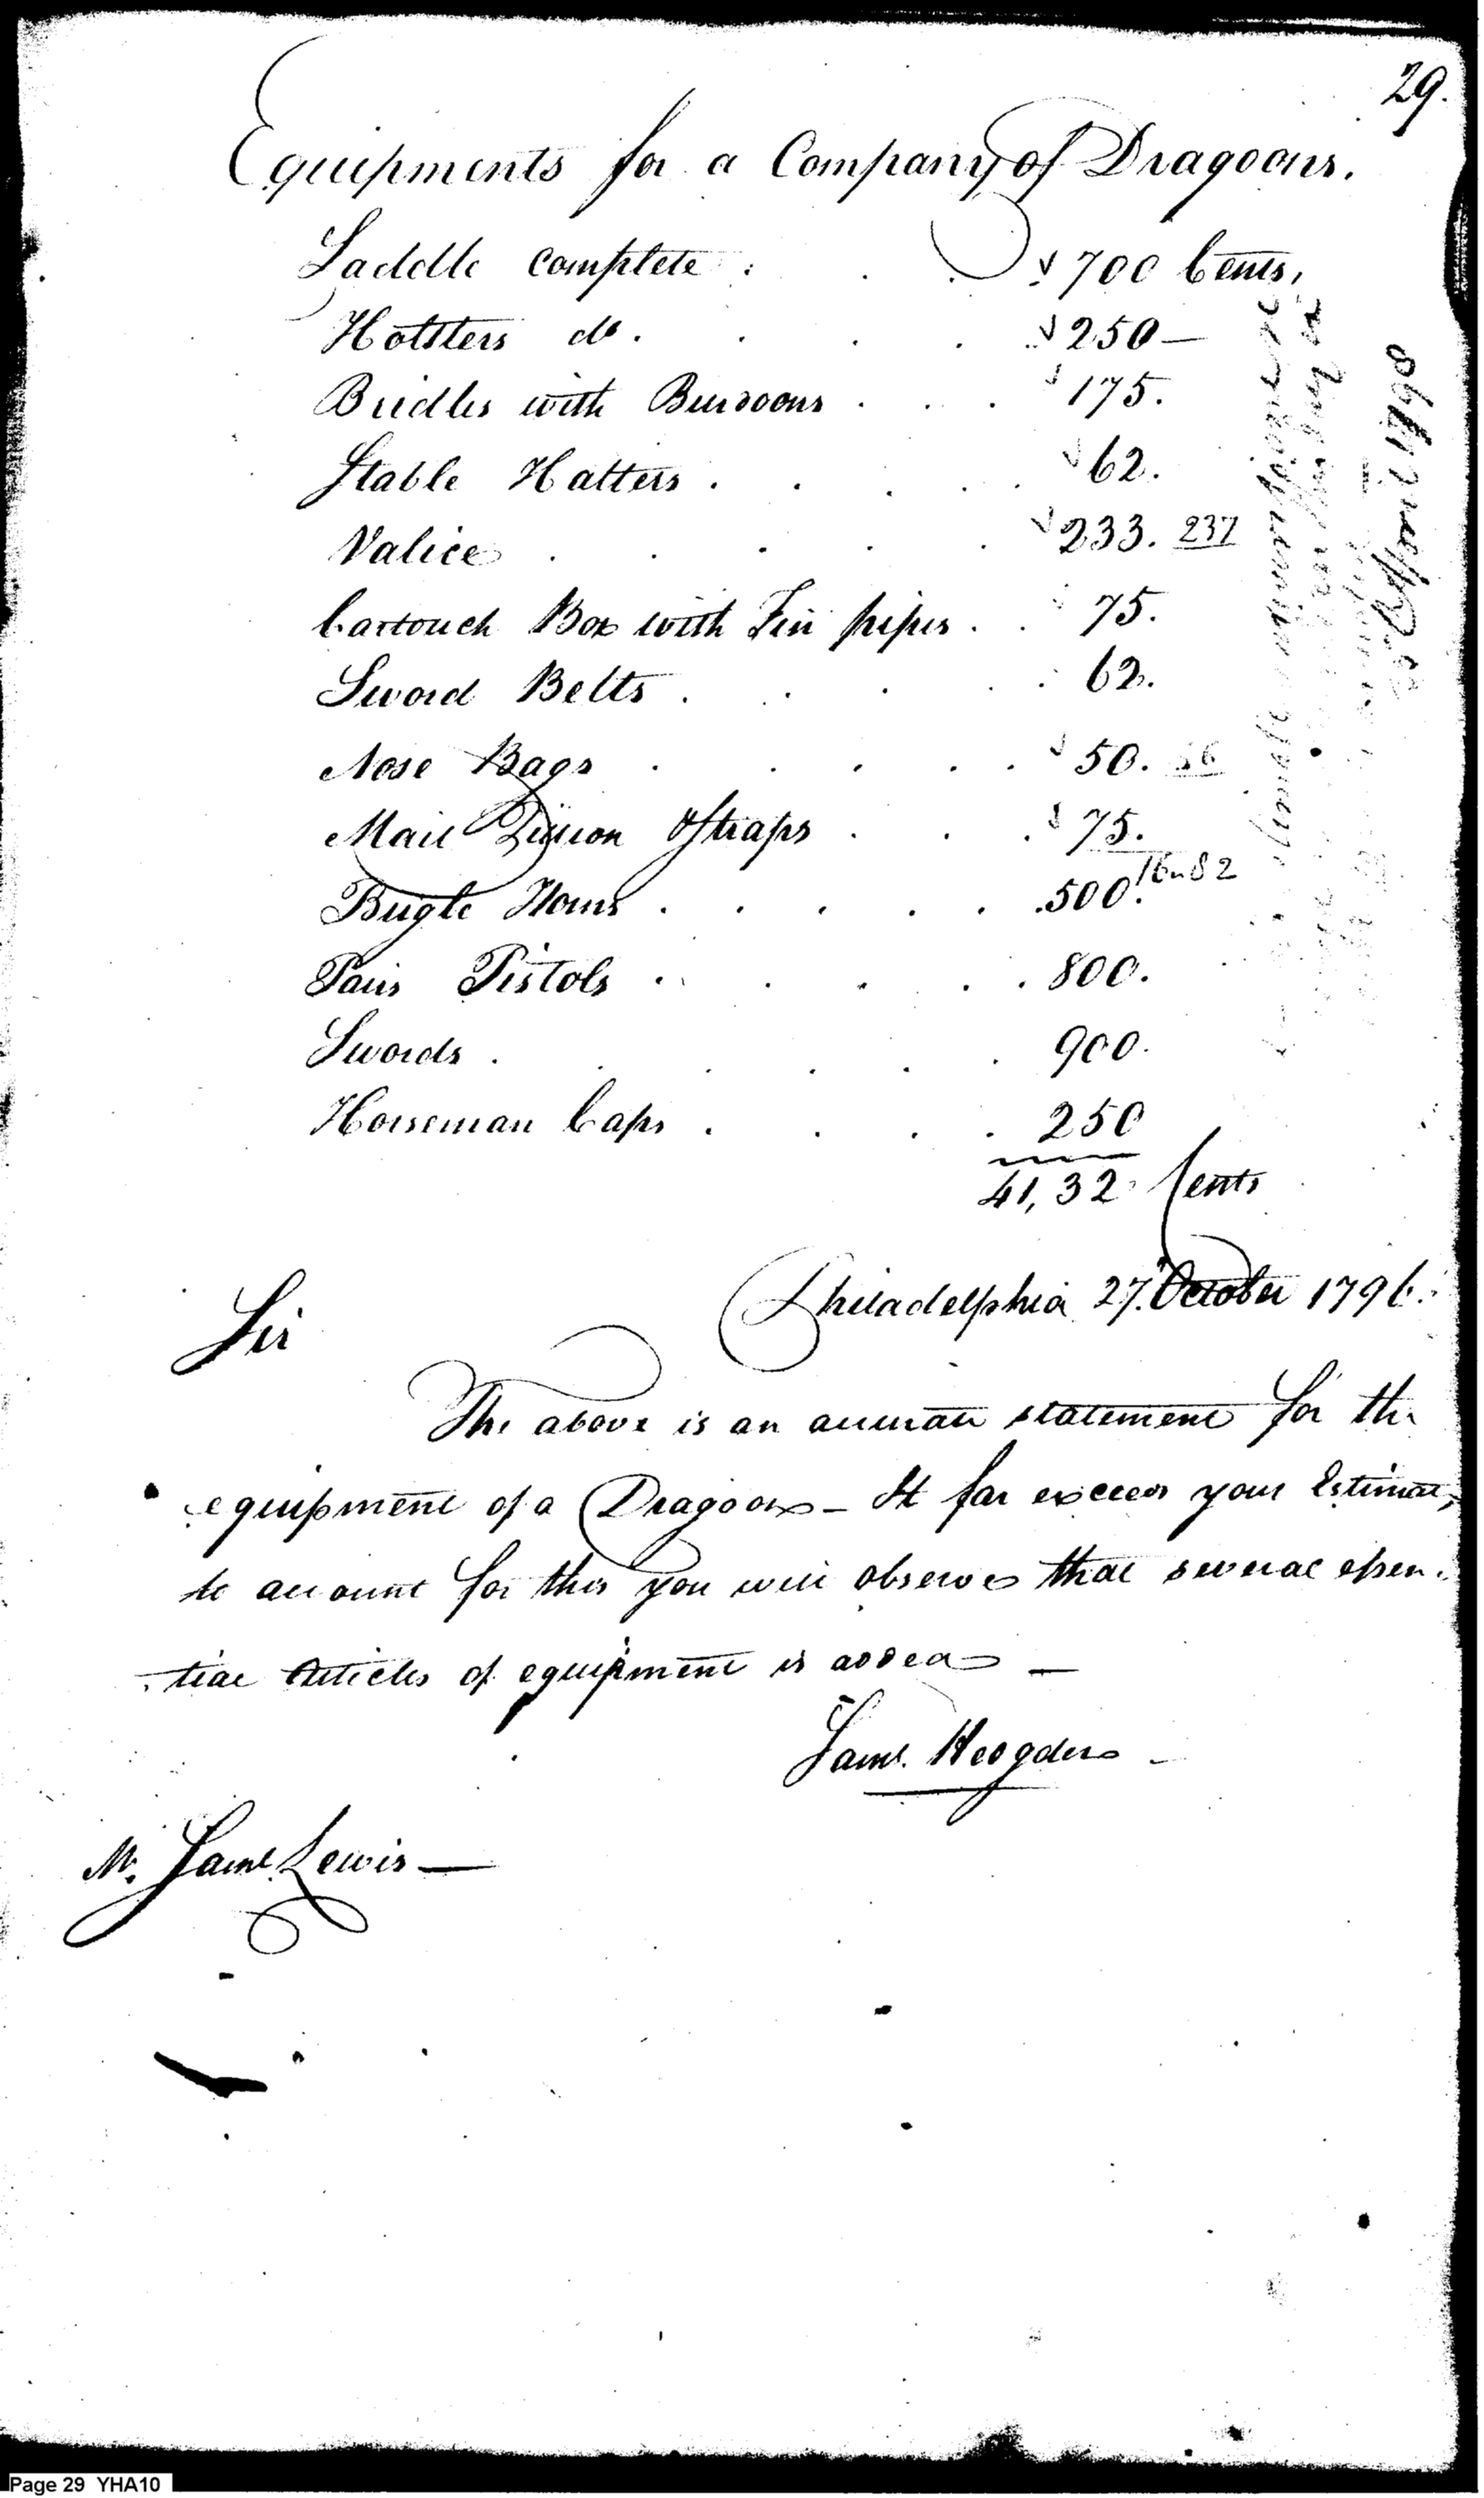 29.
Equipments for a Company of Dragoons.
Saddle complete . . . 700 Cents,
Holsters do. . . . 250—
Bridles with Burdoons . . . 175.
Stable Halters . . . . . 62.
Valice . . . . . 233. 237
Cartouch Box with Tin pipes . . 75.
Sword Belts . . . . . 62.
Nose Bags . . . . . 50. 56
Mail Pillion & Straps . . . 75.
16..82
Bugle Horns . . . . . .500.
Pairs Pistols . . . . . 800.
Swords . . . . . 900.
Horseman Caps . . . . 250
41,32 Cents
Philadelphia 27. October 1796.
Sir
The above is an accurate statement for the
equipment of a Dragoon - It far exceeds your Estimate,
to account for this you will observe that several essen-
tial Articles of equipment is added —
Saml. Hodgdon -
Mr. Saml Lewis —
Page 29 YHA10